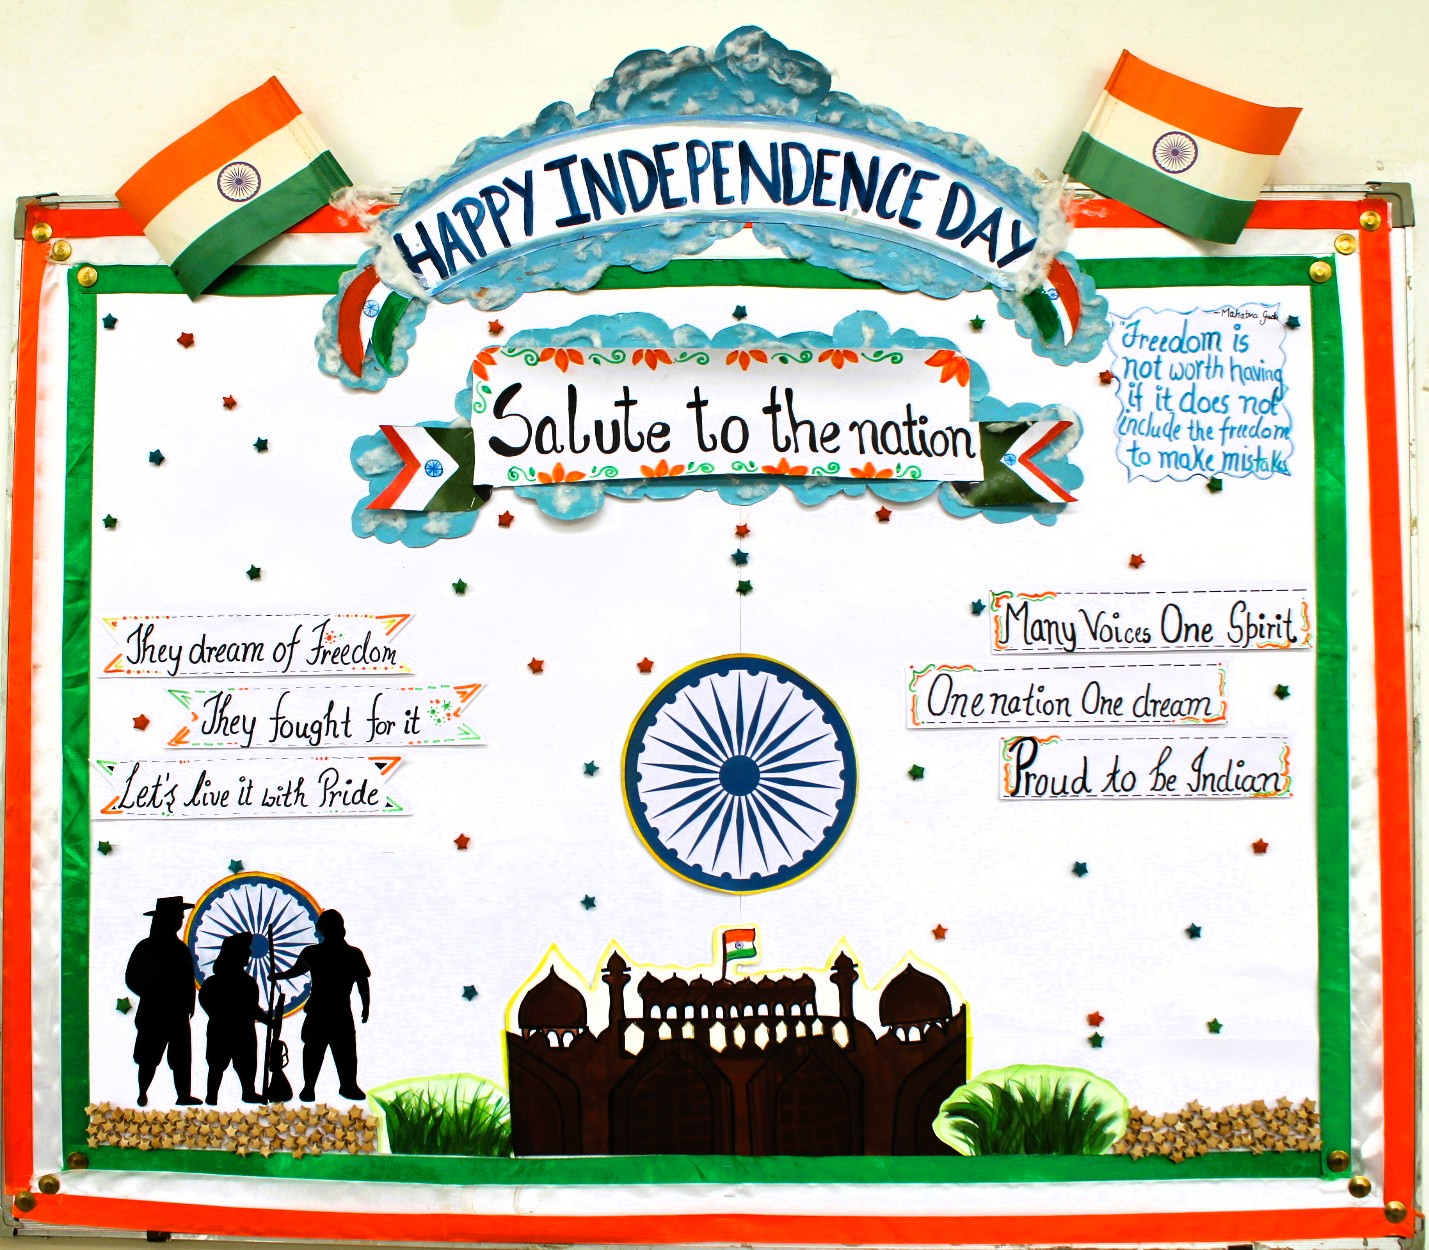 HAPPY INDEPENDENCE DAY
Salute to the nation
- Mahatma Gandhi
"Freedom is
not worth having
if it does not
include the freedom
to make mistakes
They dream of Freedom
They fought for it
Let's live it with Pride
Many Voices One Spirit
One nation One dream
Proud to be Indian